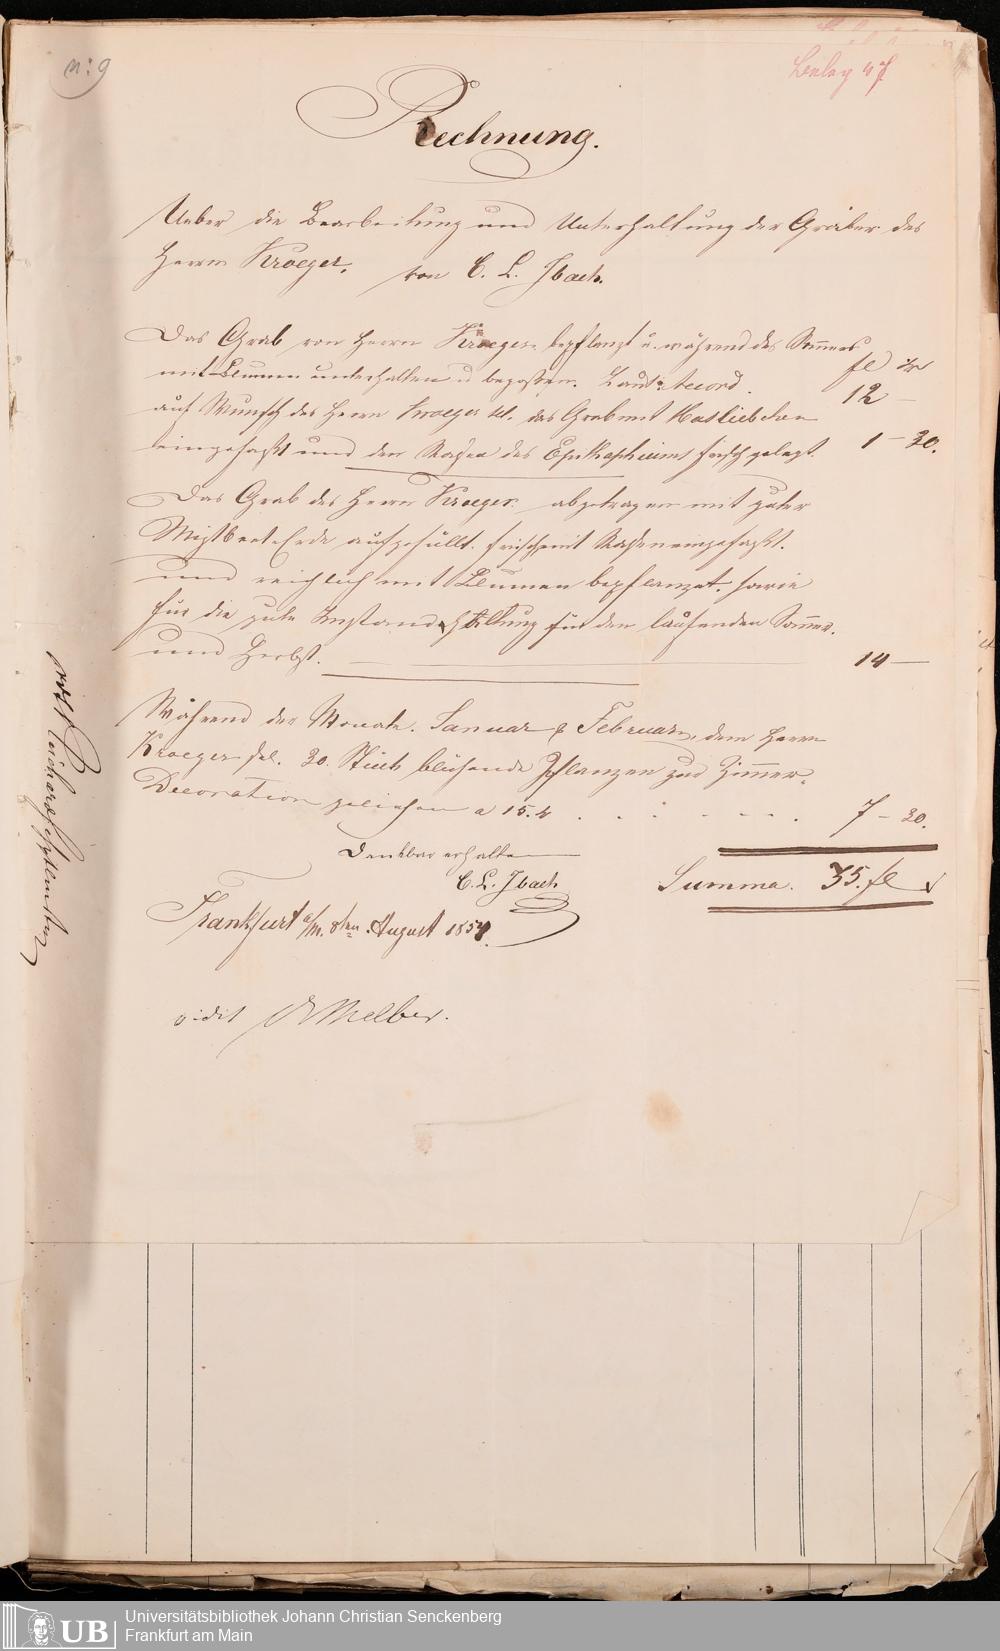 n: 9
Beleg 47
Rechnung.
Ueber die Bearbeitung und Unterhaltung der Gräber des
Herrn Kroeger, von C. L. Ibach.
Das Grab von Herrn Kroeger bepflanzt u. während des Sommers
mit Blumen unterhalten u begossen. Laut Accord.
fl xr
12 —
auf Wunsch des Herrn Kroeger sel. das Grab mit Masliebchen
eingefaßt und den Rasen des Epithaphiums frisch gelegt.
1 — 30.
Das Grab des Herrn Kroeger abgetragen mit guter
Mistbeet-Erde aufgefüllt. frisch mit Rasen eingefaßt.
und reichlich mit Blumen bepflanzet. sowie
für die gute Instandhaltung für den laufenden Sommer.
und Herbst. 14 —
Während der Monate. Januar & Februar, dem Herrn
Kroeger sel. 30. Stück blühende Pflanzen zur Zimmer-
Decoration geliehen a 15. 7 — 30.
Dankbar erhalten
C. L. Ibach
Summa. 35. fl
Frankfurt a/M. 8ten August 1854.
vidit Dr Melber.
Universitätsbibliothek Johann Christian Senckenberg
Frankfurt am Main
UB